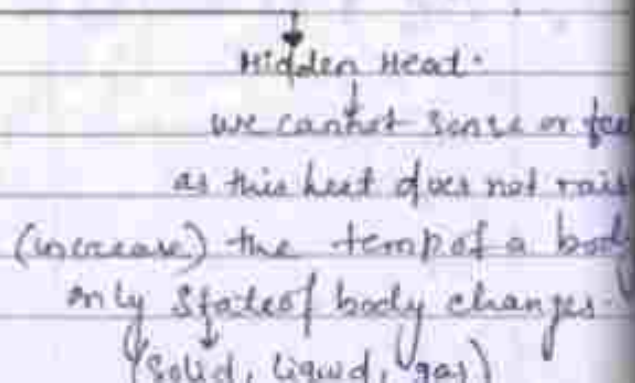 Hidden Heat.
we cannot sense or fee
as this heat does not rais
(increase) the temp of a bod
only state of body changes.
(solid, liquid, gas)